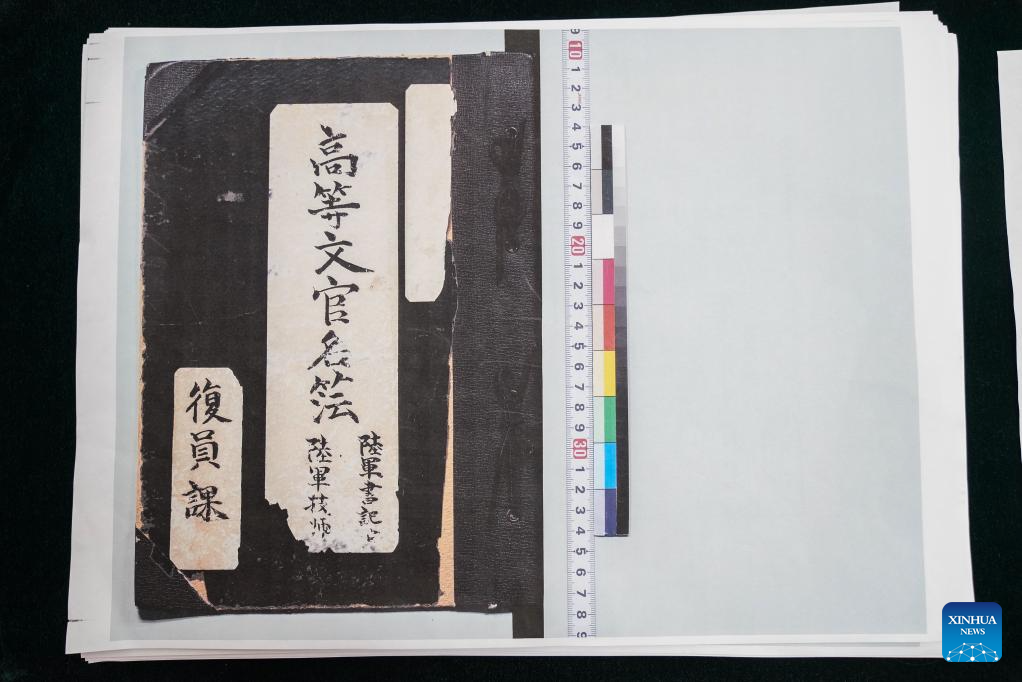 高等文官名簿
陸軍書記
陸軍技師
復員課
9 10 1 2 3 4 5 6 7 8 9 20 1 2 3 4 5 6 7 8 9 30 1 2 3 4 5 6 7 8 9
XINHUA
NEWS